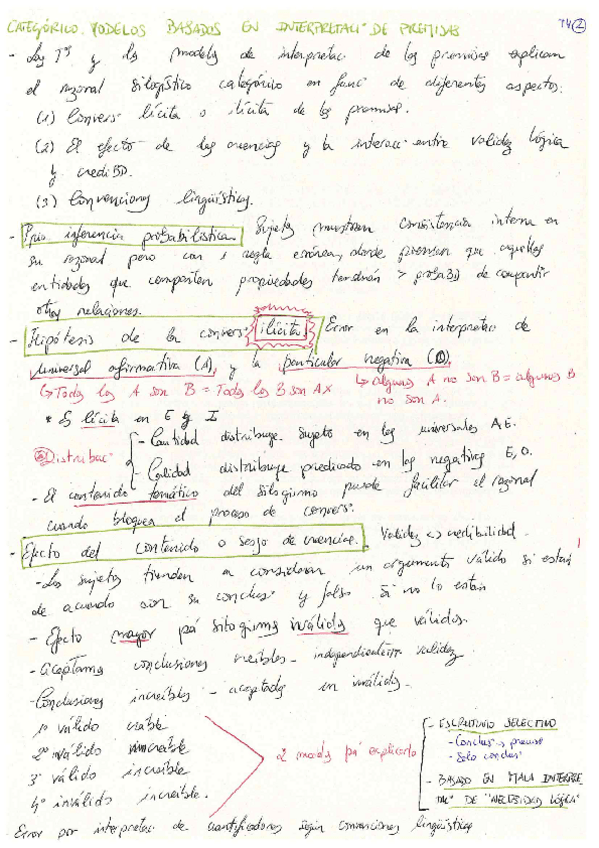 CATEGÓRICO. MODELOS BASADOS EN INTERPRETACIº DE PREMISAS T4(2)
- Las Tª y los modelos de interpretac de las premisas explican
el razonal silogístico categórico en funcº de diferentes aspectos:
(1) Conversº lícita o ilícita de las premisas.
(2) El efecto de las creencias y la interaccº entre validez lógica
y crediBD.
(3) Convenciones lingüísticas.
- Ppio. inferencia probabilística. Sujetos muestran consistencia interna en
su razonal pero con 1 regla errónea, donde piensan que aquellas
entidades que comparten propiedades tendrán > probaBD de compartir
otras relaciones.
- Hipótesis de la conversº ilícita. Error en la interpretac de
universal afirmativa (A), y la particular negativa (O).
↳ Todos los A son B = Todos los B son A x ↳ algunos A no son B = algunos B
no son A.
* Es lícita en E y I
Distribucº
- Cantidad distribuye sujeto en los universales A, E.
- Calidad distribuye predicado en las negativas E, O.
- El contenido temático del silogismo puede facilitar el razonal
cuando bloquea el proceso de conversº.
- Efecto del contenido o sesgo de creencias. Validez <> credibilidad.
- Los sujetos tienden a considerar un argumento válido si están
de acuerdo con su conclusº y falso si no lo están
- Efecto mayor pá silogismos inválidos que válidos.
- aceptamos conclusiones creíbles - independiente validez
- Conclusiones increíbles - aceptadas en inválidos.
1º válido creíble
2º inválido creíble
3º válido increíble
4º inválido increíble.
2 modos pá explicarlo
- ESCRUTINIO SELECTIVO
- Conclusº → premisa
- Solo conclusº
- BASADO EN MALA INTERPRE
TACº DE "NECESIDAD LÓGICA"
Error por interpretac de cuantificadores según convenciones lingüísticas